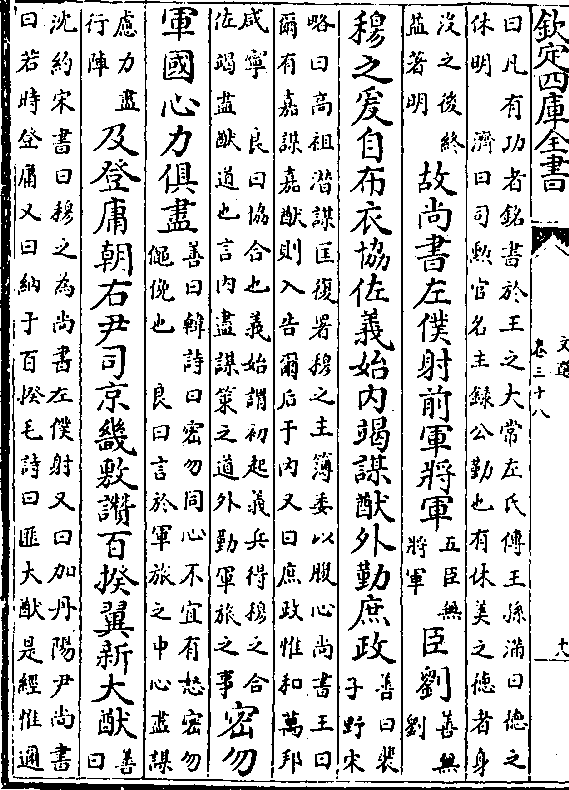 欽定四庫全書
文選
卷三十八
十八
曰凡有功者銘書於王之大常左氏傳王孫滿曰德之
休明 濟曰司勲官名主録公勤也有休美之德者身
沒之後終
益著明
故尚書左僕射前軍將軍
五臣無
將軍
臣劉
善無
劉
穆之爰自布衣協佐義始内竭謀猷外勤庶政
善曰裴
子野宋
略曰高祖潛謀匡復署穆之主簿委以腹心尚書王曰
爾有嘉謀嘉猷則入告爾后于内又曰庶政惟和萬邦
咸寧 良曰協合也義始謂初起義兵得穆之合
佐竭盡猷道也言内盡謀策之道外勤軍旅之事
密勿
軍國心力俱盡
善曰韓詩曰密勿同心不宜有怒密勿
僶俛也 良曰言於軍旅之中心盡謀
慮力盡
行陣
及登庸朝右尹司京畿敷讚百揆翼新大猷
善
曰
沈約宋書曰穆之為尚書左僕射又曰加丹陽尹尚書
曰若時登庸又曰納于百揆毛詩曰匪大猷是經惟邇